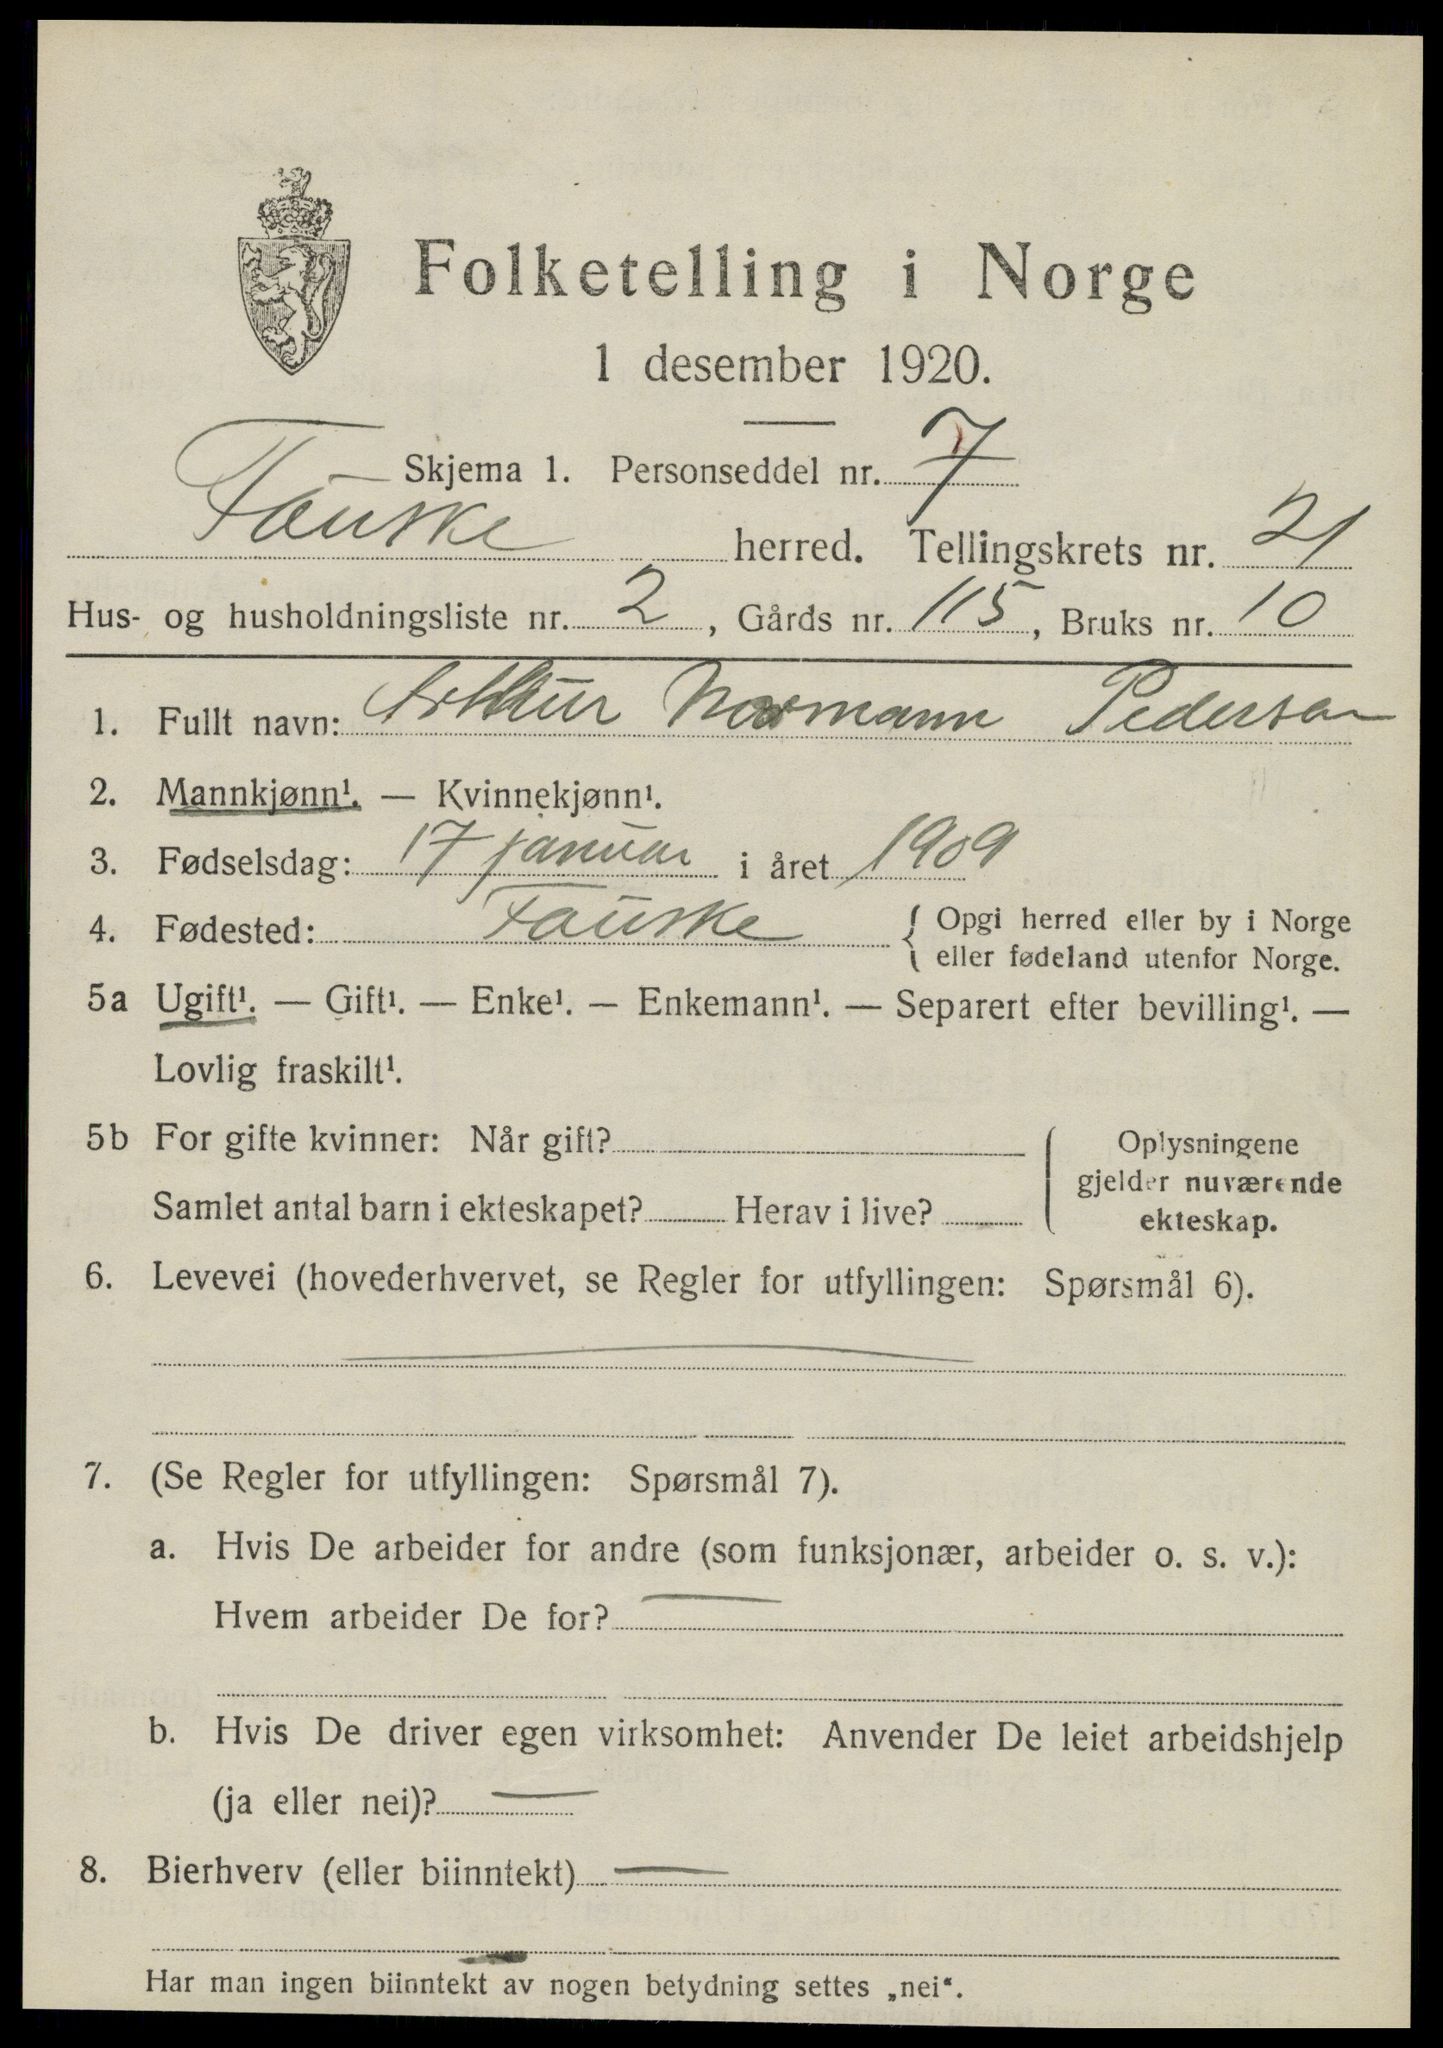 Folketelling i Norge
1 desember 1920.
Skjema 1. Personseddel nr. 7
Fauske herred. Tellingskrets nr. 21
Hus- og husholdningsliste nr. 2, Gårds nr. 115, Bruks nr. 10
1. Fullt navn: Arthur Normann Pedersen
2. Mannkjønn¹. — Kvinnekjønn¹.
3. Fødselsdag: 17 januar i året 1909
4. Fødested: Fauske { Opgi herred eller by i Norge
eller fødeland utenfor Norge.
5a Ugift¹. — Gift¹. — Enke¹. — Enkemann¹. — Separert efter bevilling¹. —
Lovlig fraskilt¹.
5b For gifte kvinner: Når gift?
Samlet antal barn i ekteskapet? Herav i live?
Oplysningene
gjelder nuværende
ekteskap.
6. Levevei (hovederhvervet, se Regler for utfyllingen: Spørsmål 6).
7. (Se Regler for utfyllingen: Spørsmål 7).
a. Hvis De arbeider for andre (som funksjonær, arbeider o. s. v.):
Hvem arbeider De for? —
b. Hvis De driver egen virksomhet: Anvender De leiet arbeidshjelp
(ja eller nei)? —
8. Bierhverv (eller biinntekt) —
Har man ingen biinntekt av nogen betydning settes „nei“.